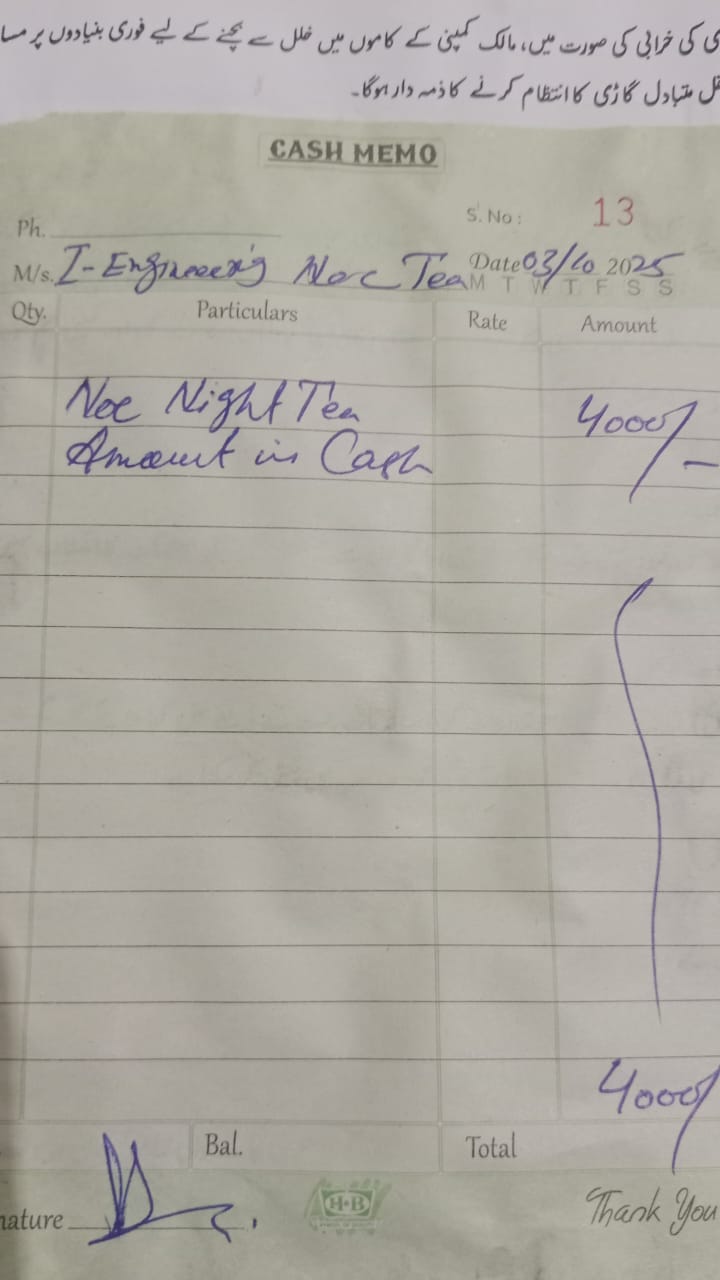 ی کی خرابی کی صورت میں، مالک کمپنی کے کاموں میں خلل سے بچنے کے لیے فوری بنیادوں پر مسا
قل متبادل گاڑی کا انتظام کرنے کا ذمہ دار ہوگا۔
CASH MEMO
Ph. S. No: 13
M/s. I-Engineering Noc Team Date 03/10 2025
M T W T F S S
Qty. Particulars Rate Amount
Noc Night Tea 4000/-
Amount in Cash
4000/
Bal. Total
nature
H·B
Thank You